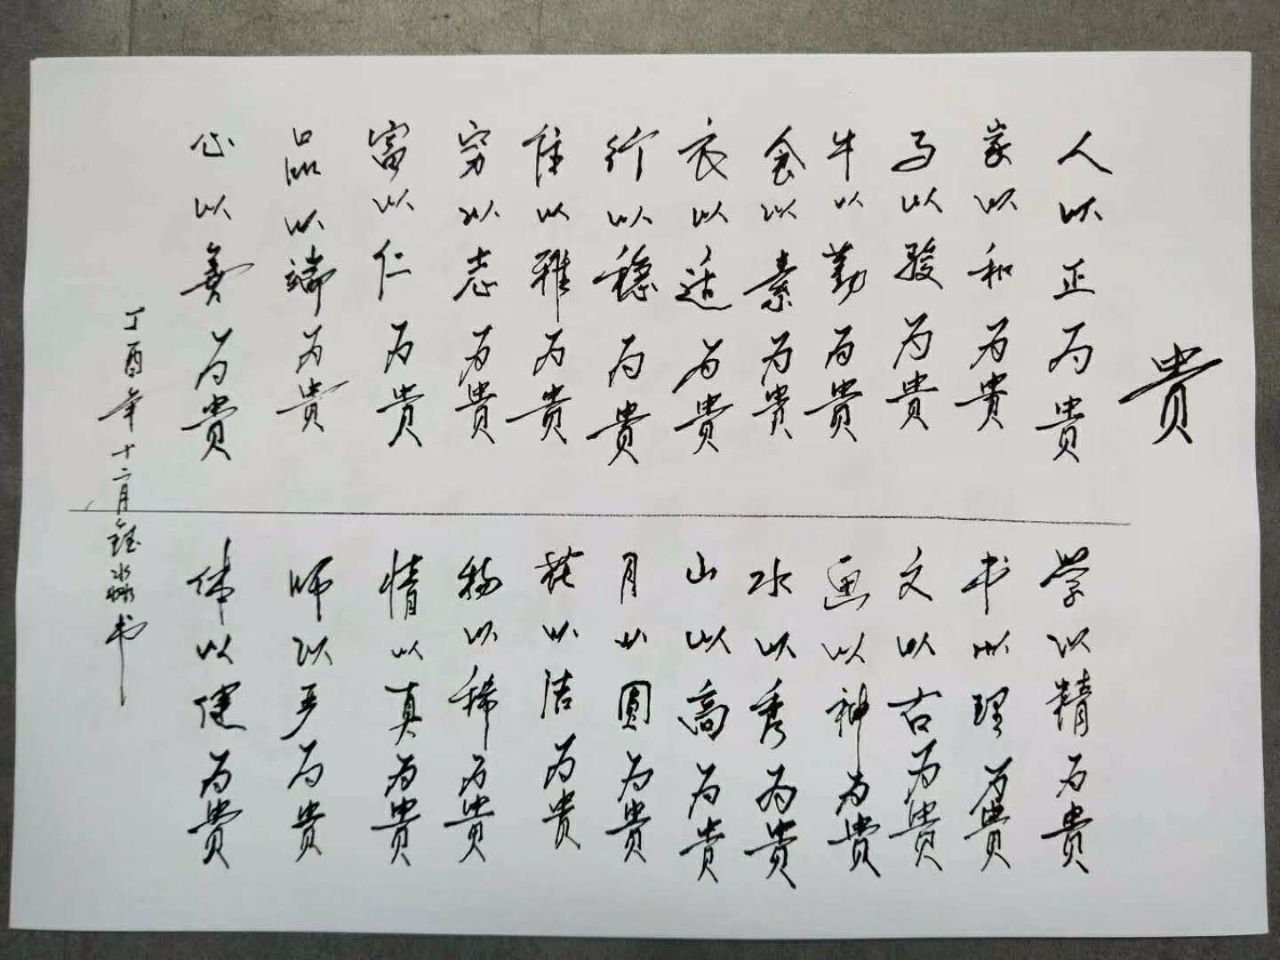 贵
人以正为贵
家以和为贵
马以骏为贵
牛以勤为贵
食以素为贵
衣以适为贵
行以稳为贵
住以雅为贵
穷以志为贵
富以仁为贵
品以端为贵
心以善为贵
学以精为贵
书以理为贵
文以古为贵
画以神为贵
水以秀为贵
山以高为贵
月以圆为贵
花以洁为贵
物以稀为贵
情以真为贵
师以严为贵
体以健为贵
丁酉年十二月 书